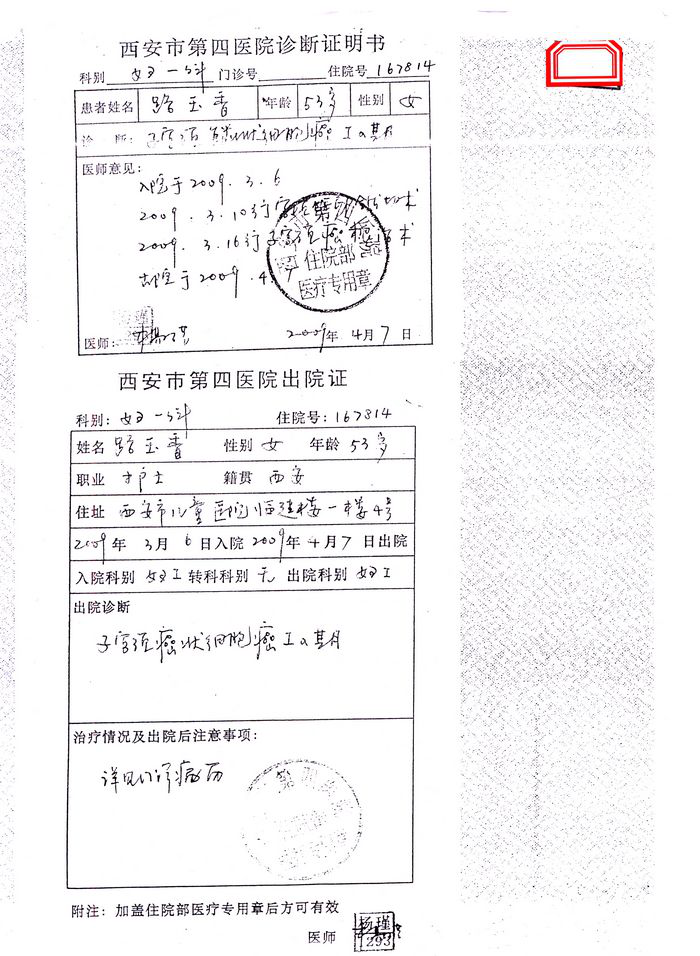 西安市第四医院诊断证明书
科别 妇一科 门诊号 住院号 167814
患者姓名 路玉香 年龄 53岁 性别 女
诊 断: 子宫颈 状细胞癌 Ia期
医师意见:
入院于2009.3.6
2009.3.10行 术
2009.3.16行子宫颈癌 术
出院于2009.4.
住院部
医疗专用章
医师:
2009年 4月 7 日
西安市第四医院出院证
科别: 妇一科 住院号: 167814
姓名 路玉香 性别 女 年龄 53岁
职业 护士 籍贯 西安
住址 西安市儿童医院 建楼一楼4号
2009年 3月 6 日入院 2009年 4月 7 日出院
入院科别 妇I 转科科别 无 出院科别 妇I
出院诊断
子宫颈 状细胞癌Ia期
治疗情况及出院后注意事项:
详见门诊病历
附注: 加盖住院部医疗专用章后方可有效
医师 杨瑾
1293